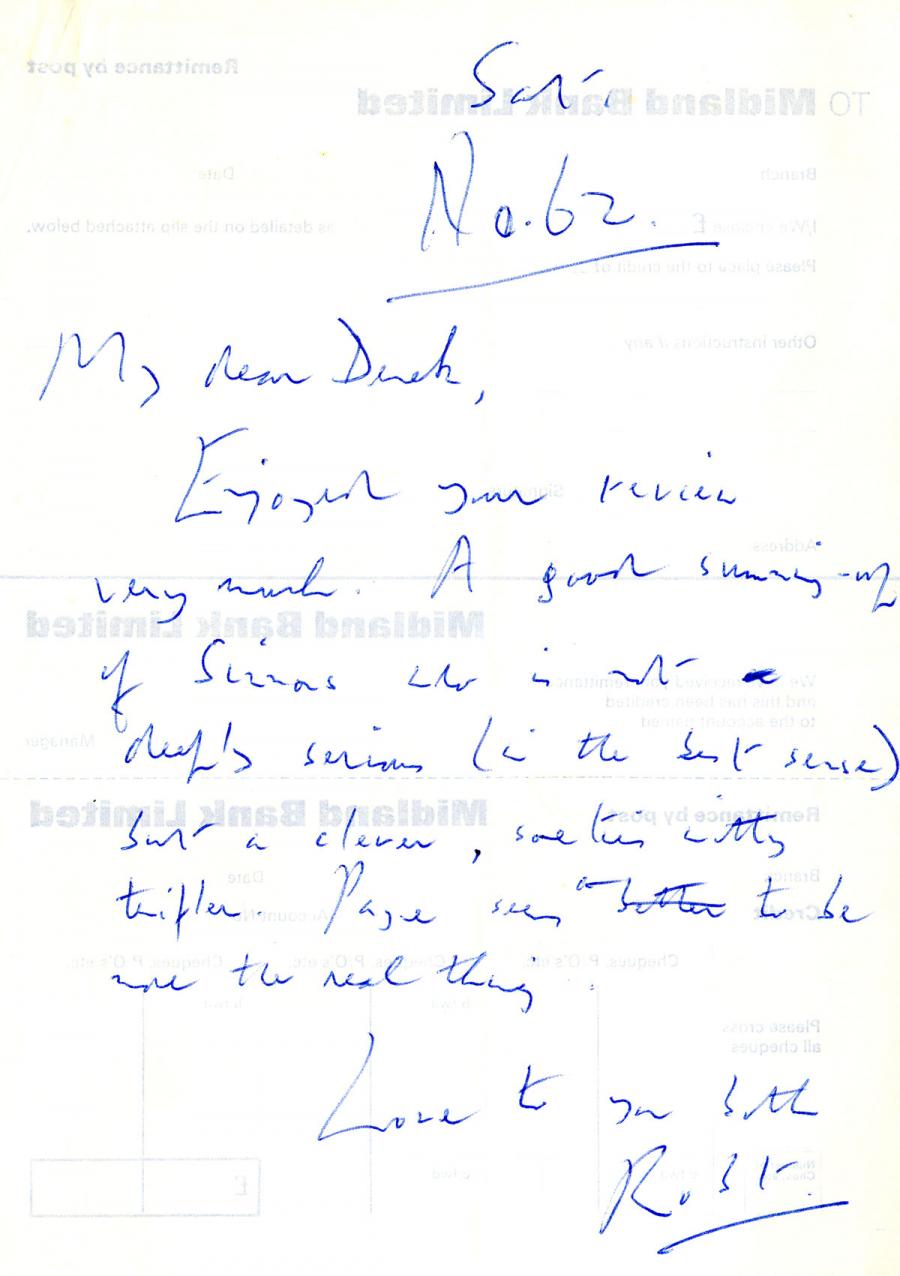 Sat.
No. 62.
My dear Derek,
Enjoyed your review
very much. A good summing-up
of Simons who is not a
deeply serious (in the best sense)
but a clever, sometimes witty
trifler. Page seems better to be
more the real thing.
Love to you both
Robt.
Remittance by post
TO Midland Bank Limited
Branch Date
I/We enclose £ as detailed on the slip attached below.
Please place to the credit of
Other instructions if any
Address
Midland Bank Limited
We received remittance
and this has been credited
to the account named
Manager
Remittance by post Midland Bank Limited
Branch Date
Credit Account
Cheques, P.O's etc. Cheques, P.O's etc. Cheques, P.O's etc.
Please cross
all cheques
£